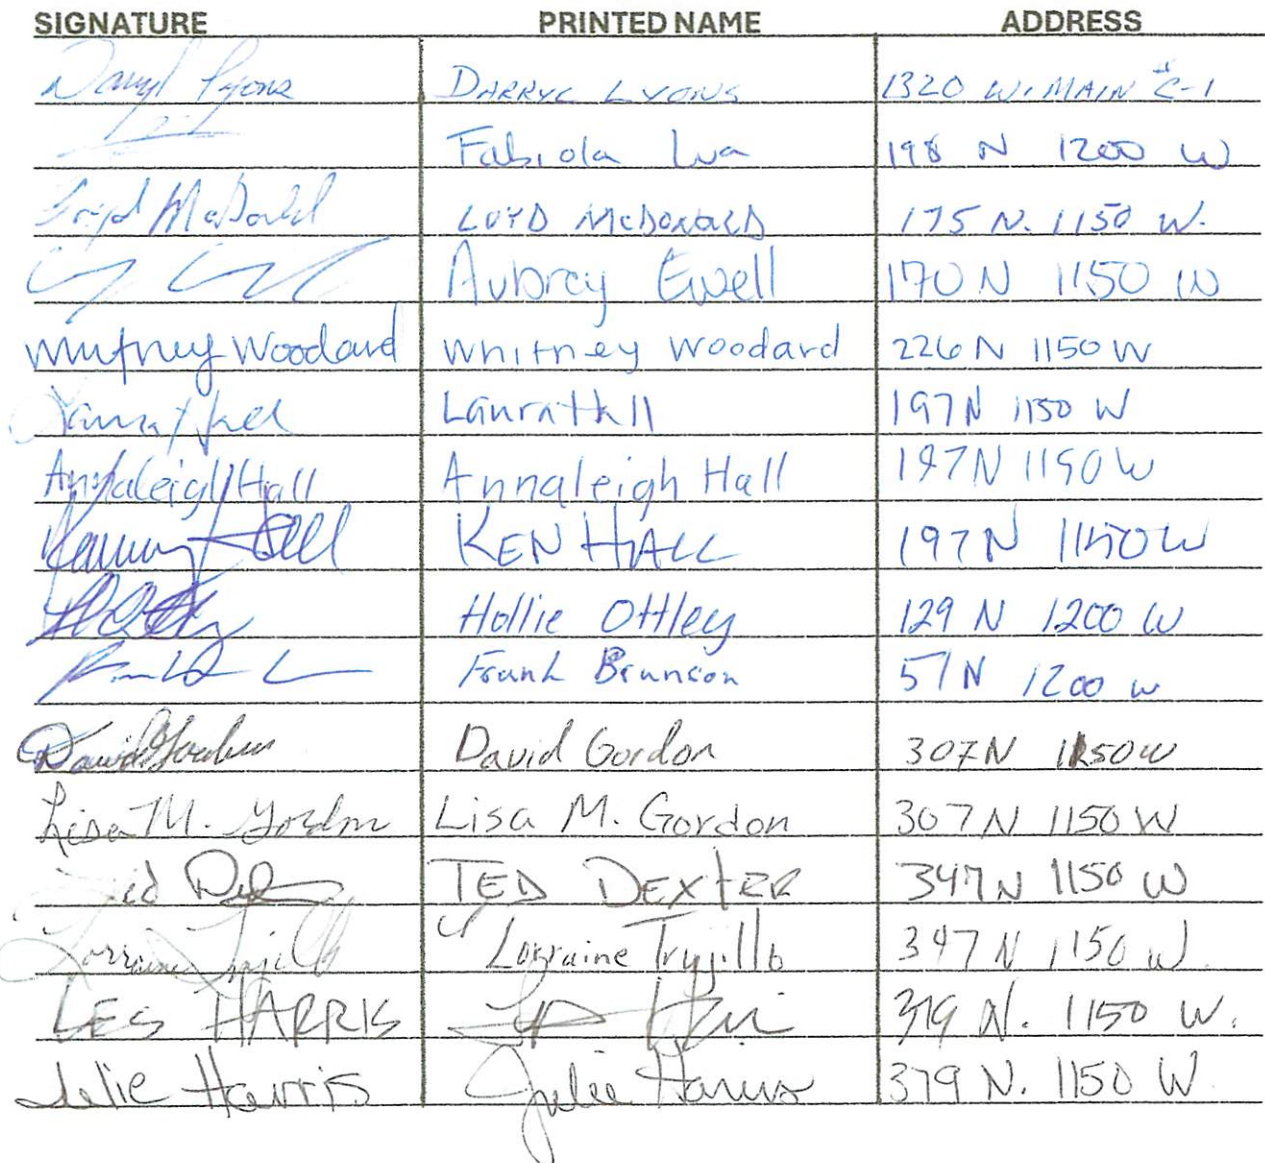 SIGNATURE PRINTED NAME ADDRESS
Darryl Lyons DARRYL LYONS 1320 W. MAIN #C-1
Fabiola Lua 198 N 1200 W
Loyd McDonald LOYD McDONALD 175 N. 1150 W.
Aubrey Ewell 170 N 1150 W
Whitney Woodard Whitney Woodard 226 N 1150 W
Laura Hall Laura Hall 197 N 1150 W
Annaleigh Hall Annaleigh Hall 197 N 1150 W
Hall KEN HALL 197 N 1150 W
Hollie Ottley 129 N 1200 W
Frank Brunson 57 N 1200 W
David Gordon David Gordon 307 N 1150 W
Lisa M. Gordon Lisa M. Gordon 307 N 1150 W
Ted TED DEXTER 347 N 1150 W
Lorraine Trujillo Lorraine Trujillo 347 N 1150 W.
LES HARRIS 379 N. 1150 W.
Julie Harris Julie Harris 379 N. 1150 W.